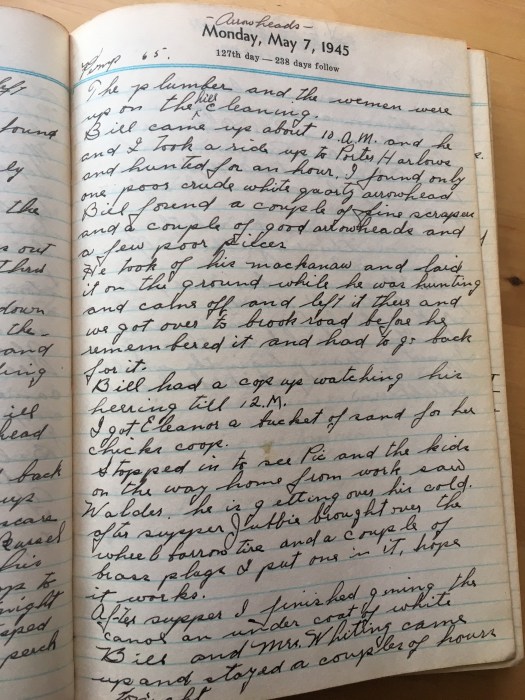 - Arrowheads -
Monday, May 7, 1945
127th day — 238 days follow
65.
The plumber and the women were
up on the hill cleaning.
Bill came up about 10 A.M. and he
and I took a ride up to Porter Harlows
and hunted for an hour, I found only
one poor crude white quartz arrowhead
Bill found a couple of fine scrapers
and a couple of good arrowheads and
a few poor pieces
He took of his mackanaw and laid
it on the ground while he was hunting
and came off and left it there and
we got over to brook road before he
remembered it and had to go back
for it.
Bill had a cop up watching his
heering till 12.M.
I got Eleanor a bucket of sand for her
chicks coop.
Stopped in to see Pic and the kids
on the way home from work saw
Walder. he is getting over his cold.
after supper Jubbie brought over the
wheelbarrow tire and a couple of
brass plugs I put one in it, hope
it works.
After supper I finished giving the
canoe an under coat of white
Bill and Mrs. Whiting came
up and stayed a couples of hours
tonight
left
found
ly
the
s out
Third
down
the-
and
ding
ill
head
back
ups
scars
Russel
his
ps to
night
pped
perch